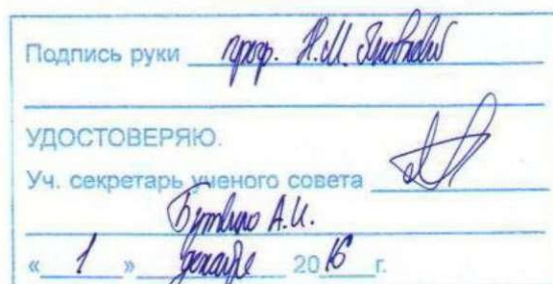 Подпись руки проф. Н.М.
УДОСТОВЕРЯЮ.
Уч. секретарь ученого совета
Бутвило А.И.
« 1 » декабря 2016 г.